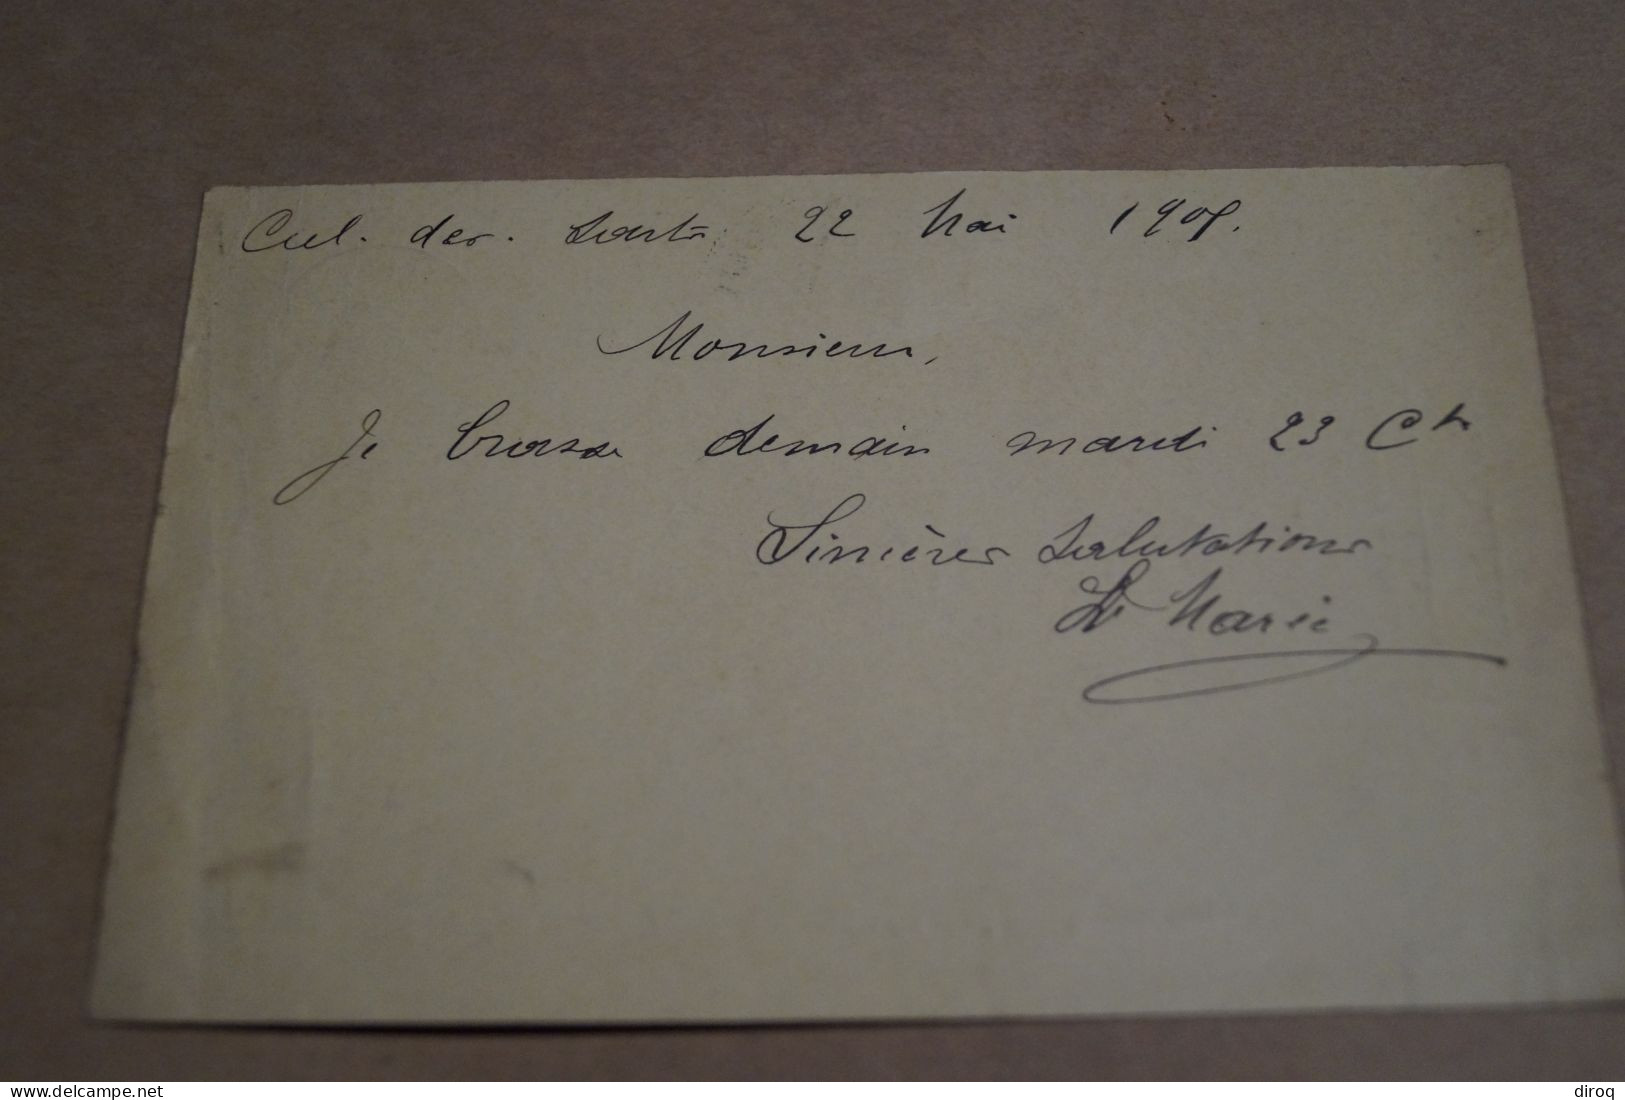 Cul. des. Sarts 22 Mai 1905.
Monsieur,
Je brasse demain mardi 23 Ct
Sincères salutations
Marie
www.delcampe.net
diroq